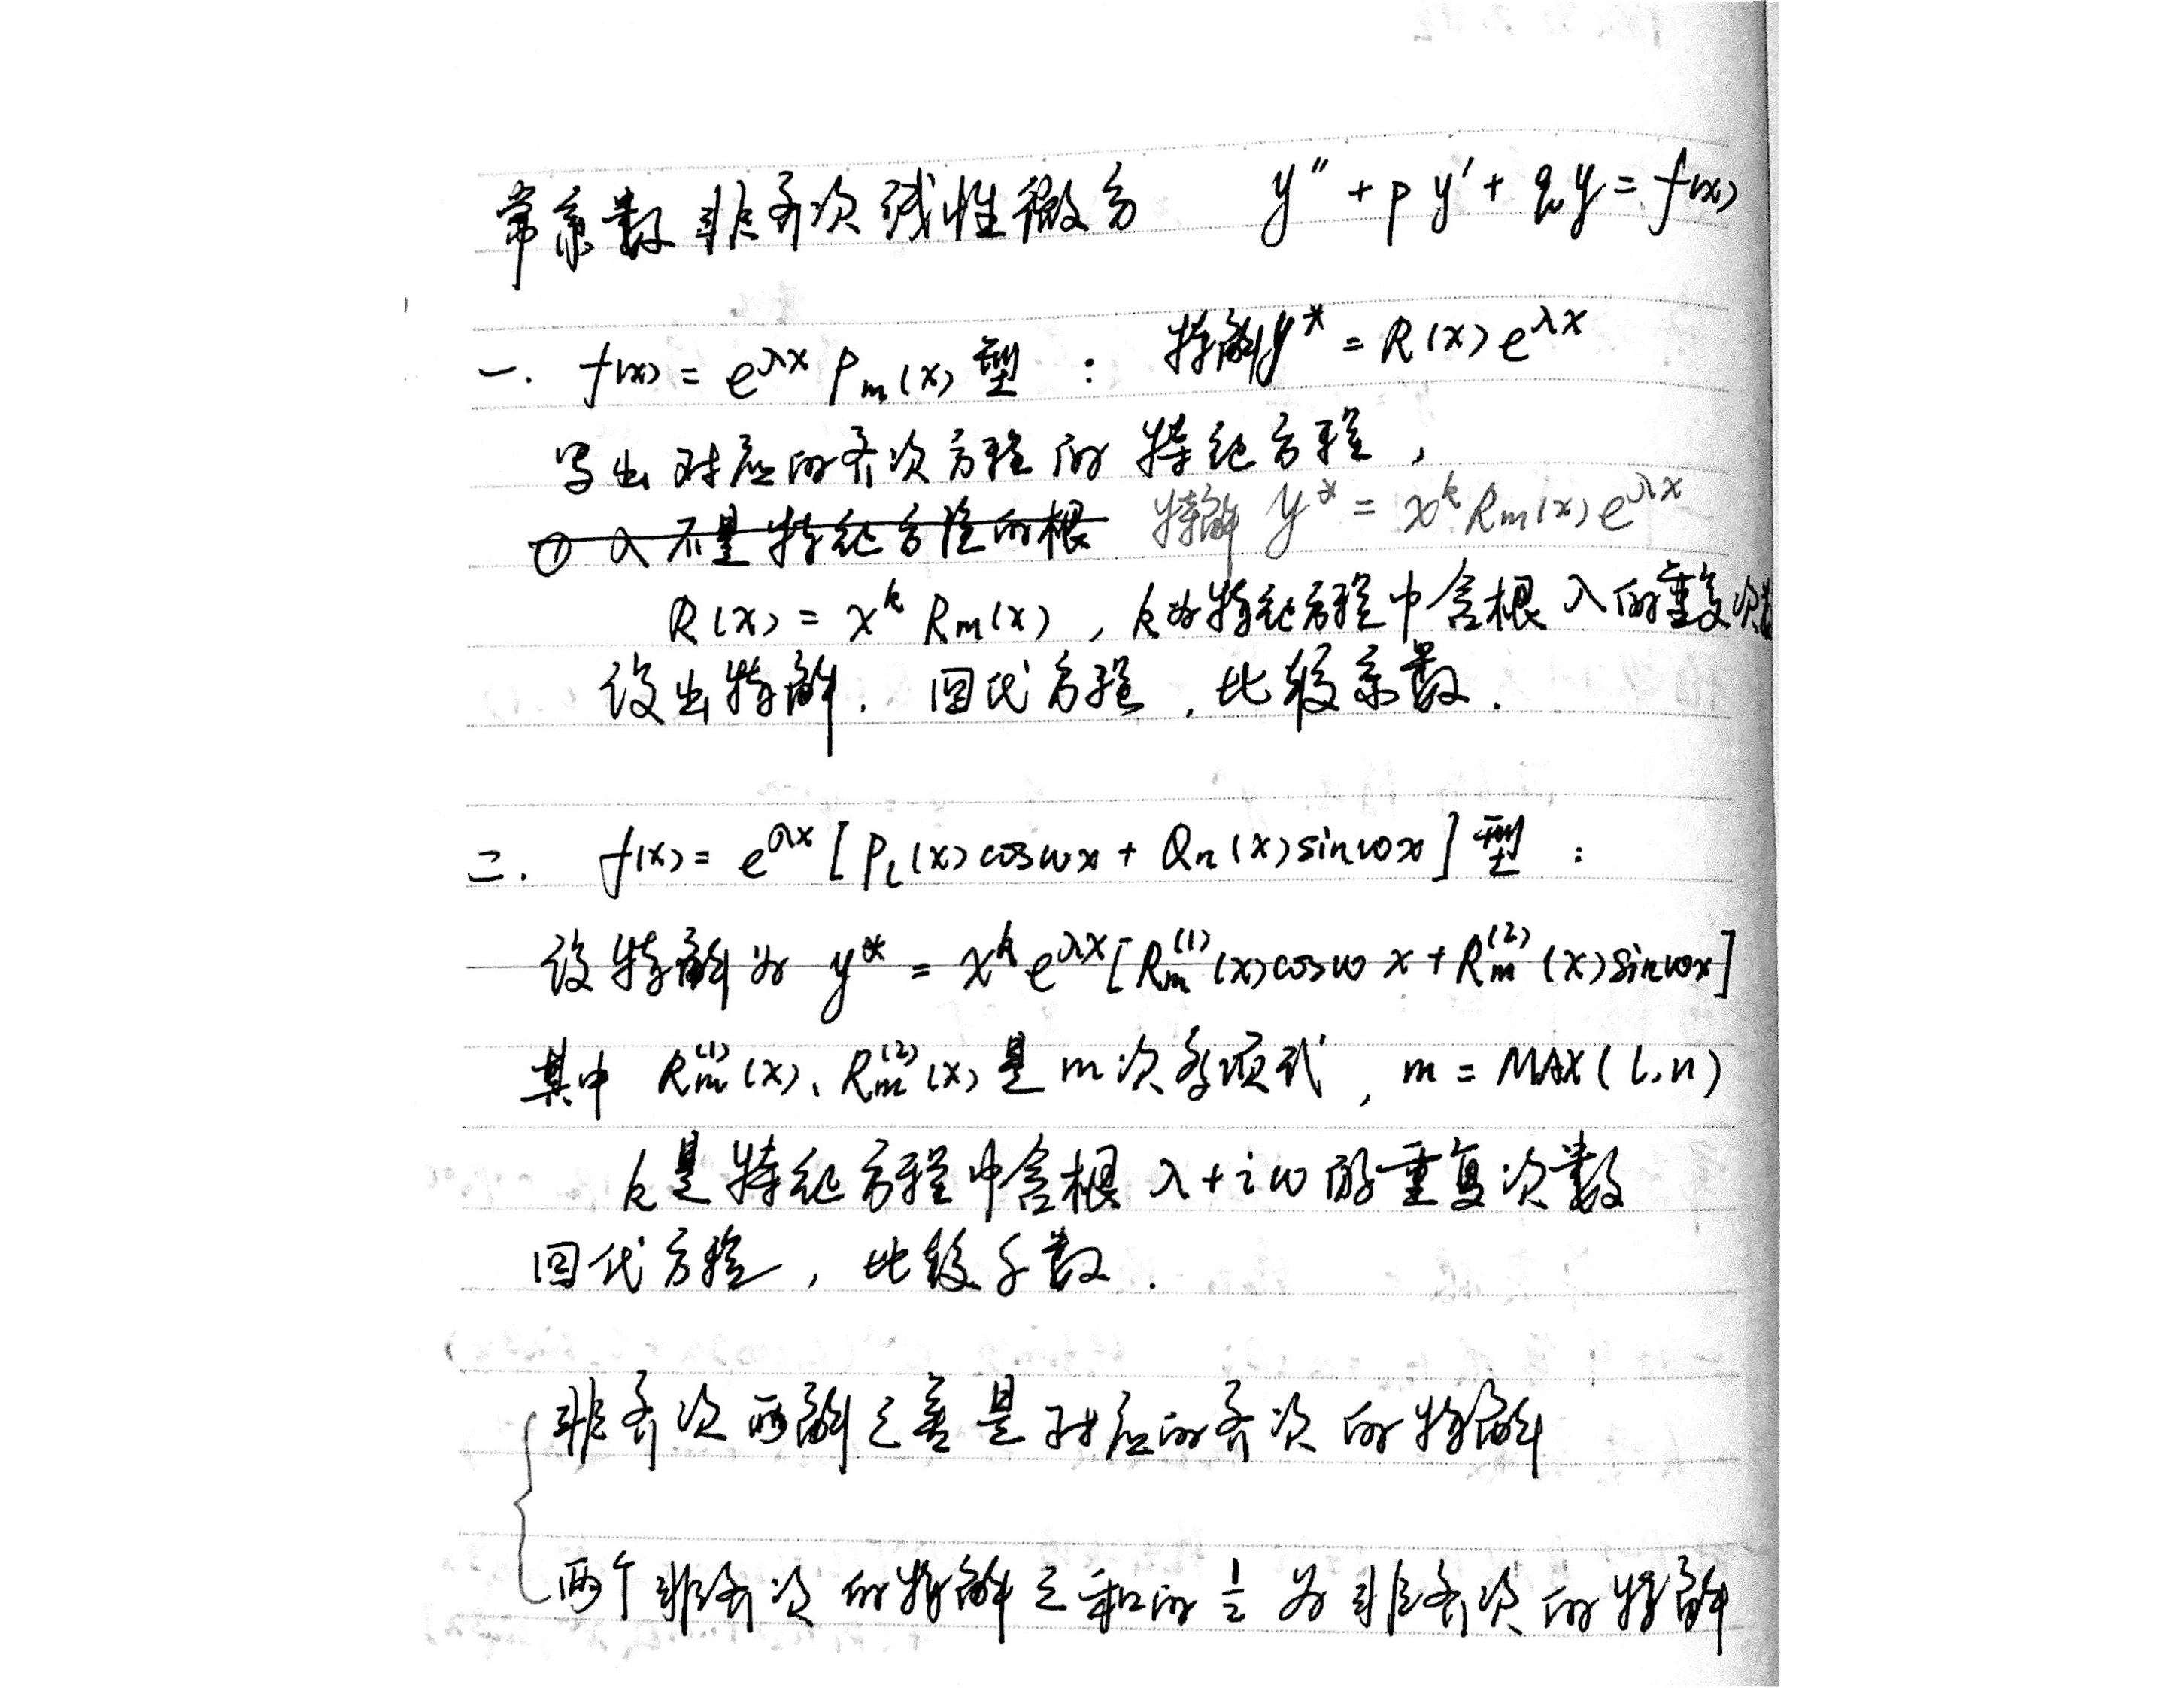 常系数非齐次线性微分 y″ + p y′ + q y = f(x)
一. f(x) = e^{λx} P_m(x) 型 : 特解 y* = R(x) e^{λx}
写出对应的齐次方程的特征方程,
① λ不是特征方程的根 特解 y* = x^k R_m(x) e^{λx}
R(x) = x^k R_m(x) , k为特征方程中含根 λ 的重复次数
设出特解. 回代方程 , 比较系数 .
二. f(x) = e^{λx} [ P_l(x) cosωx + Q_n(x) sinωx ] 型 :
设特解为 y* = x^k e^{λx} [ R_m^{(1)}(x) cosωx + R_m^{(2)}(x) sinωx ]
其中 R_m^{(1)}(x)、R_m^{(2)}(x) 是 m次多项式 , m = MAX ( l, n )
k是特征方程中含根 λ+iω 的重复次数
回代方程 , 比较系数 .
非齐次两解之差是对应的齐次的特解
两个非齐次的特解之和的 1/2 为非齐次的特解